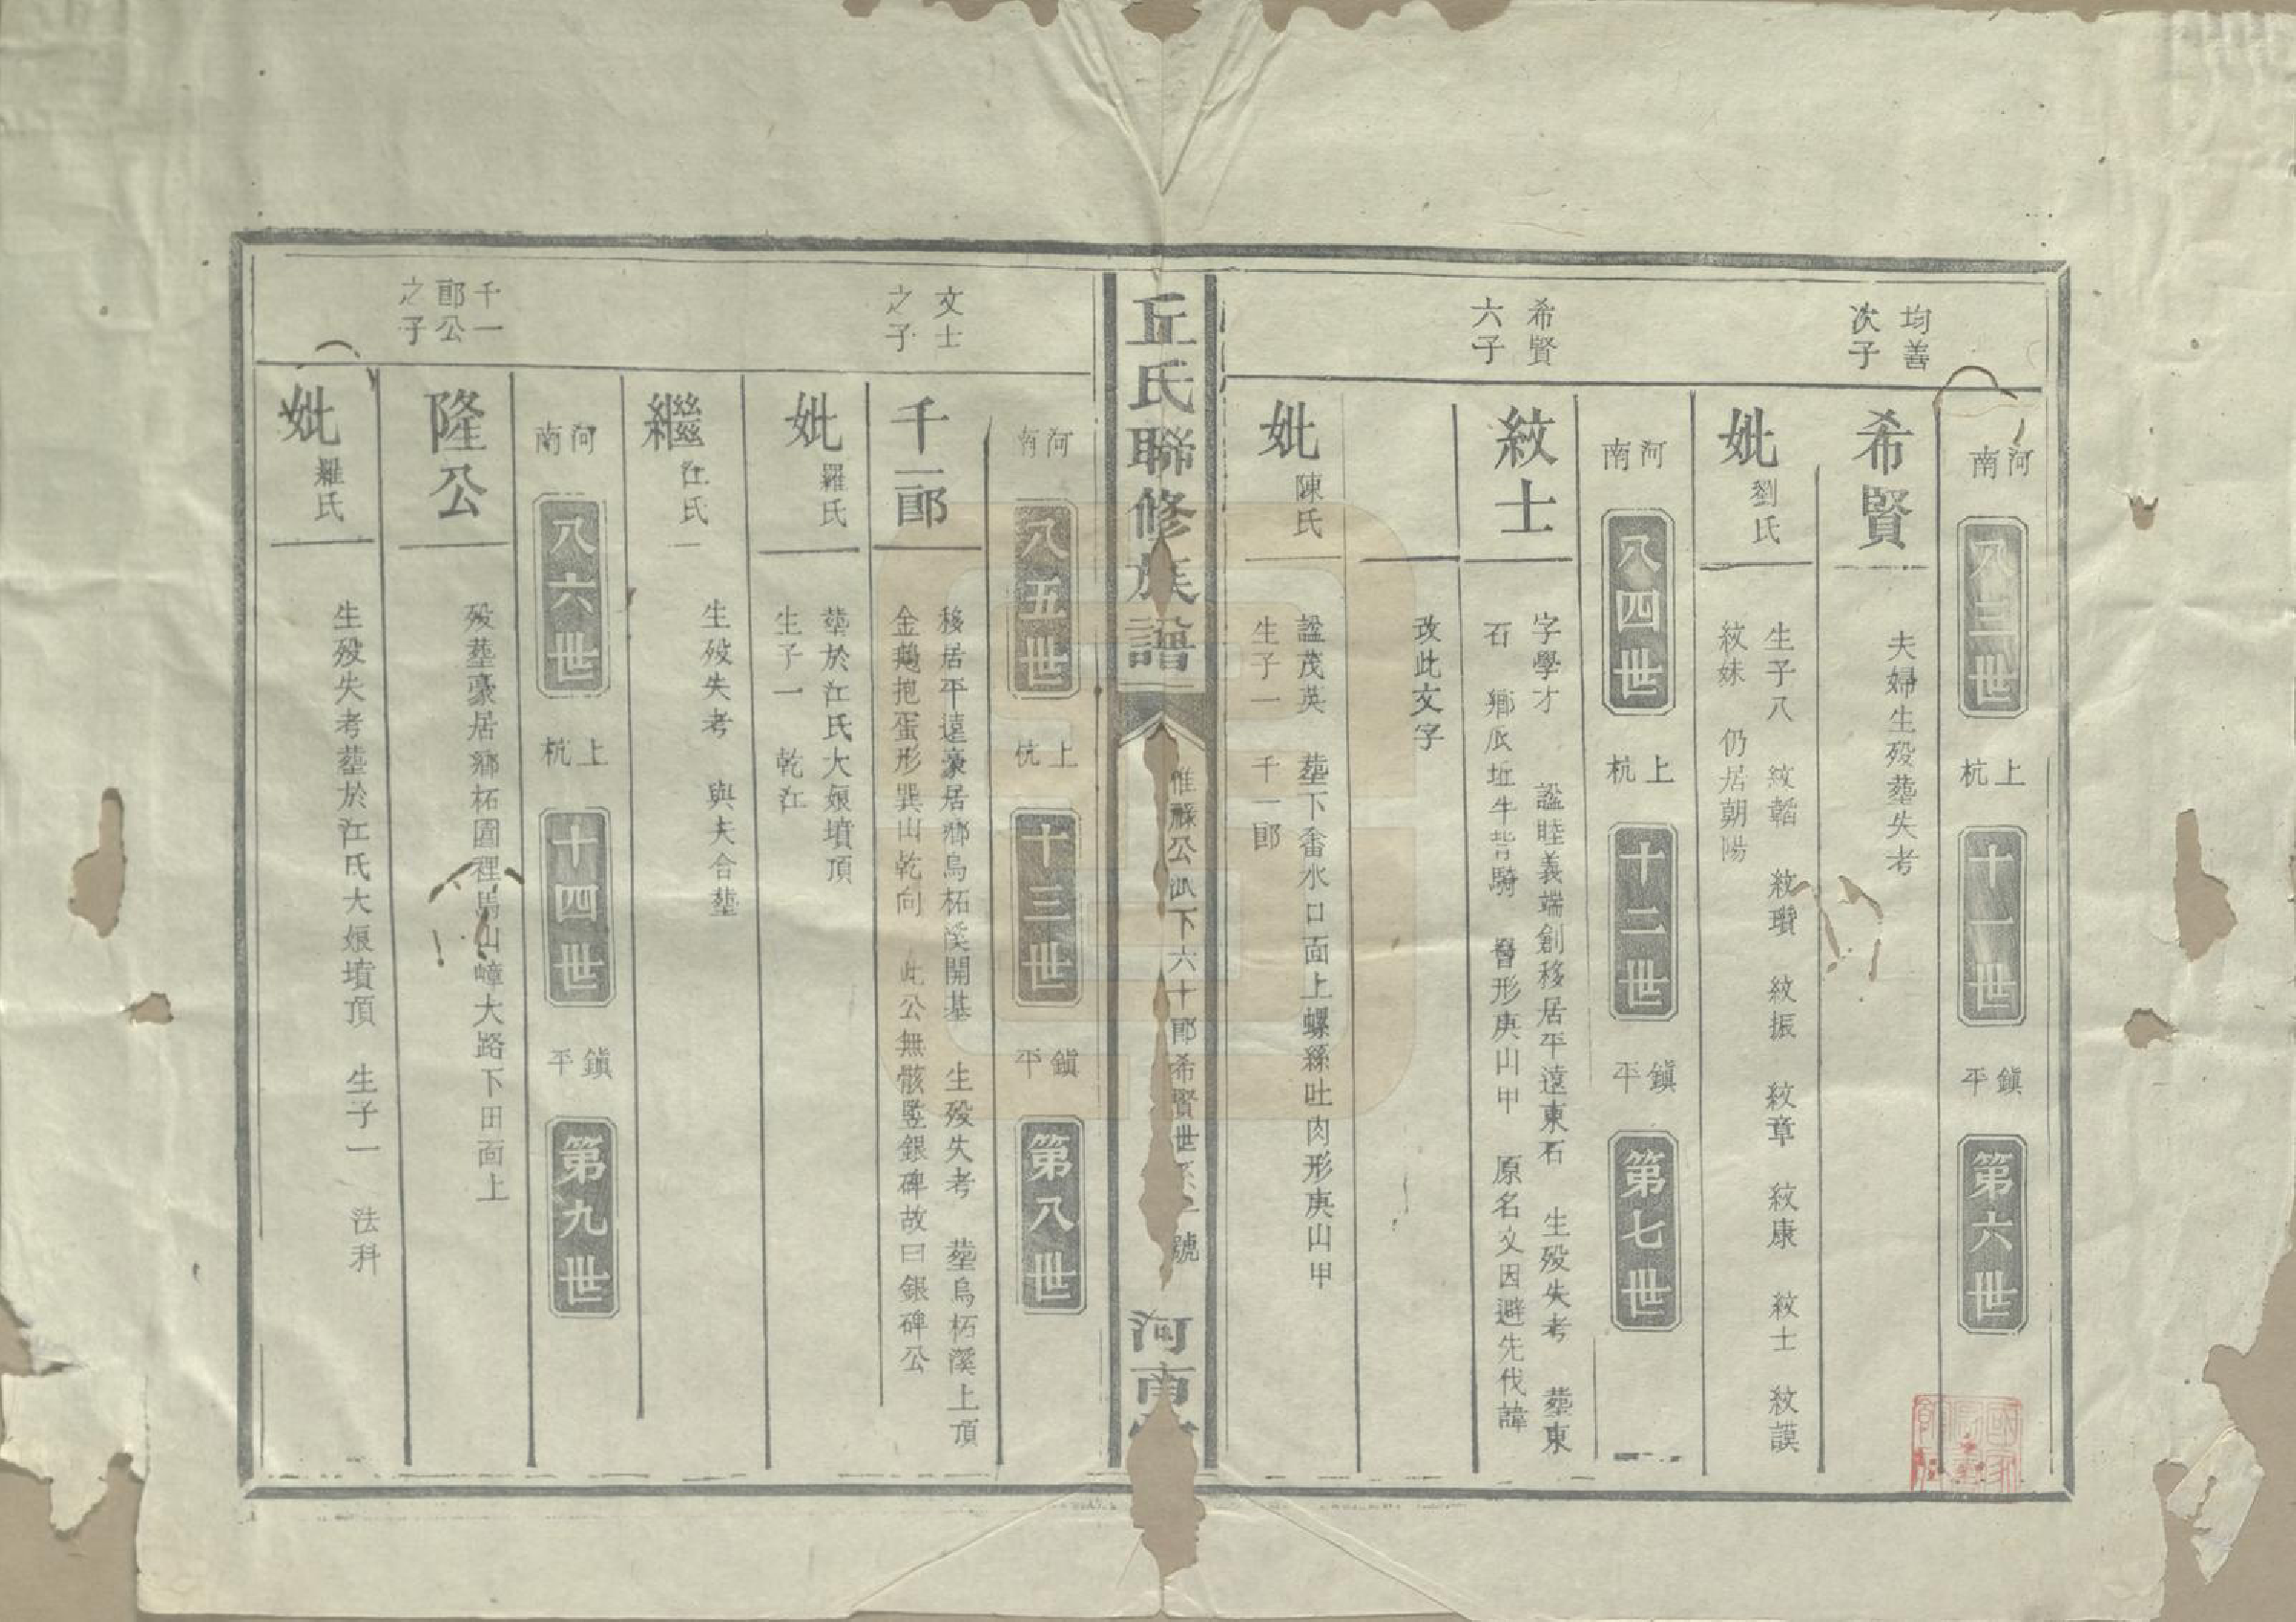 均善
次子
河南 八三世 上杭 十一世 鎮平 第六世
希賢
夫婦生殁塟失考
妣 劉氏
生子八 紋韜 紋瓚 紋振 紋章 紋康 紋士 紋謨
紋妹 仍居朝陽
希賢
六子
河南 八四世 上杭 十二世 鎮平 第七世
紋士
字學才 諡睦義端創移居平遠東石 生殁失考 塟東
石 鄉辰坵牛背騎 形庚山甲 原名文因避先代諱
改此文字
妣 陳氏
諡茂英 塟下畬水口面上螺絲吐肉形庚山甲
生子一 千一郎
丘氏聯修族譜
惟祿公派下六十郎希賢世系 號
河南
文士
之子
河南 八五世 上杭 十三世 鎮平 第八世
千一郎
移居平遠豪居鄉烏柘溪開基 生殁失考 塟烏柘溪上頂
金鵝抱蛋形巽山乾向 此公無骸竪銀碑故曰銀碑公
妣 羅氏
塟於江氏大娘墳頂
生子一 乾江
繼 江氏
生殁失考 與夫合塟
千一
郎公
之子
河南 八六世 上杭 十四世 鎮平 第九世
隆公
殁塟豪居鄉柘圓裡馬山嶂大路下田面上
妣 羅氏
生殁失考塟於江氏大娘墳頂 生子一 法科